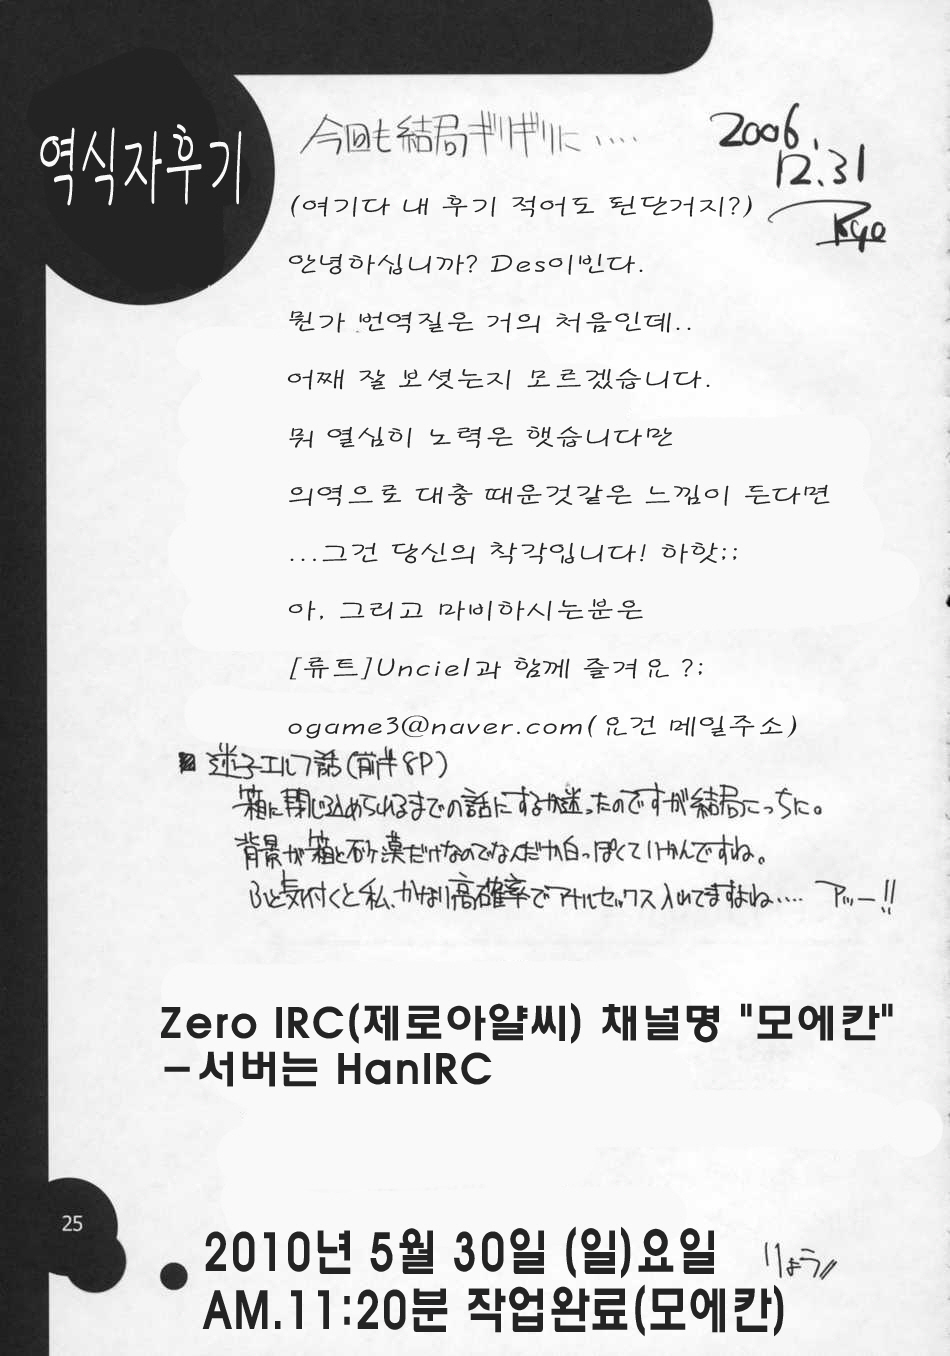 역식자후기
今回も結局ギリギリに‥‥
2006.
12.31
Ryo
(여기다 내 후기 적어도 된단거지?)
안녕하십니까? Des이빈다.
뭔가 번역질은 거의 처음인데..
어째 잘 보셧는지 모르겠습니다.
뭐 열심히 노력은 햇습니다만
의역으로 대충 때운것같은 느낌이 든다면
...그건 당신의 착각입니다! 하핫;;
아, 그리고 마비하시는분은
[류트]Unciel과 함께 즐겨요 ?;
ogame3@naver.com(요건 메일주소)
迷子エルフ話(前半8P)
箱に閉じ込められるまでの話にするか迷ったのですが結局こっちに。
背景が箱と砂漠だけなのでなんだか白っぽくていかんですね。
ふと気付くと私、かなり高確率でアナルセックス入れてますよね‥‥ アッー!!
Zero IRC(제로아얄씨) 채널명 "모에칸"
-서버는 HanIRC
25
2010년 5월 30일 (일)요일
りょう
AM.11:20분 작업완료(모에칸)